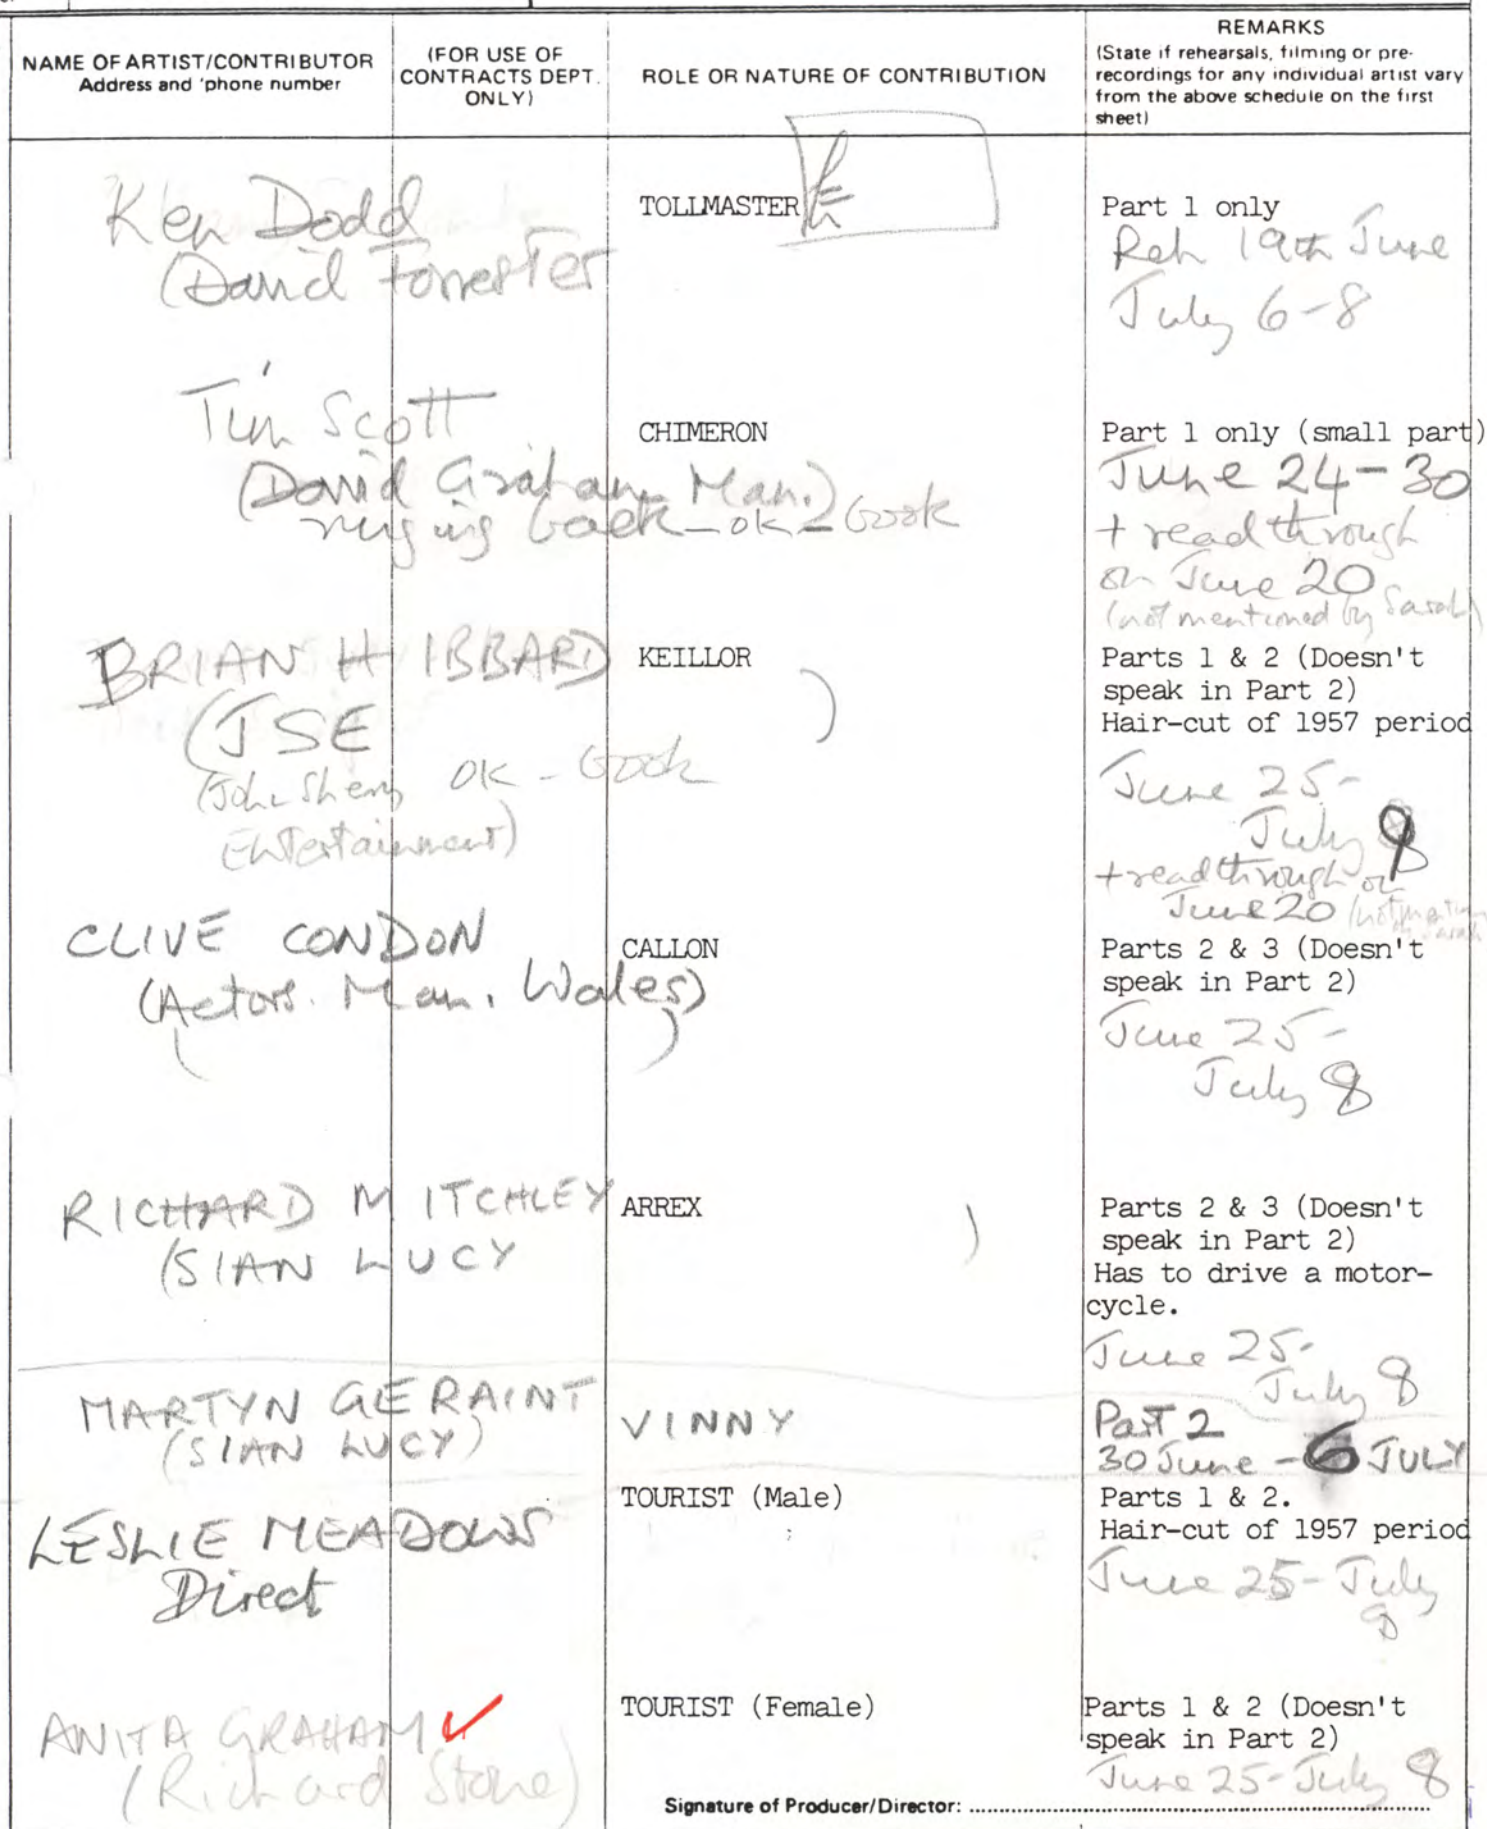 NAME OF ARTIST/CONTRIBUTOR
Address and 'phone number
(FOR USE OF
CONTRACTS DEPT.
ONLY)
ROLE OR NATURE OF CONTRIBUTION
REMARKS
(State if rehearsals, filming or pre-
recordings for any individual artist vary
from the above schedule on the first
sheet)
Ken Dodd
(David Forrester
TOLLMASTER
Part 1 only
Reh 19th June
July 6-8
Tim Scott
(David Graham Man.)
ringing back - ok - Book
CHIMERON
Part 1 only (small part)
June 24-30
+ read through
on June 20
(not mentioned by Sarah)
BRIAN HIBBARD
(JSE
(John Sherry OK - Book
Entertainment)
KEILLOR
Parts 1 & 2 (Doesn't
speak in Part 2)
Hair-cut of 1957 period
June 25-
July 8
+ read through on
June 20 (not
Sarah
CLIVE CONDON
(Actors. Man. Wales)
CALLON
Parts 2 & 3 (Doesn't
speak in Part 2)
June 25-
July 8
RICHARD MITCHLEY
(SIAN LUCY
ARREX
Parts 2 & 3 (Doesn't
speak in Part 2)
Has to drive a motor-
cycle.
June 25-
July 8
MARTYN GERAINT
(SIAN LUCY)
VINNY
Part 2
30 June - 6 JULY
LESLIE MEADOWS
Direct
TOURIST (Male)
Parts 1 & 2.
Hair-cut of 1957 period
June 25-July
8
ANITA GRAHAM ✓
(Richard Stone)
TOURIST (Female)
Parts 1 & 2 (Doesn't
speak in Part 2)
June 25-July 8
Signature of Producer/Director: